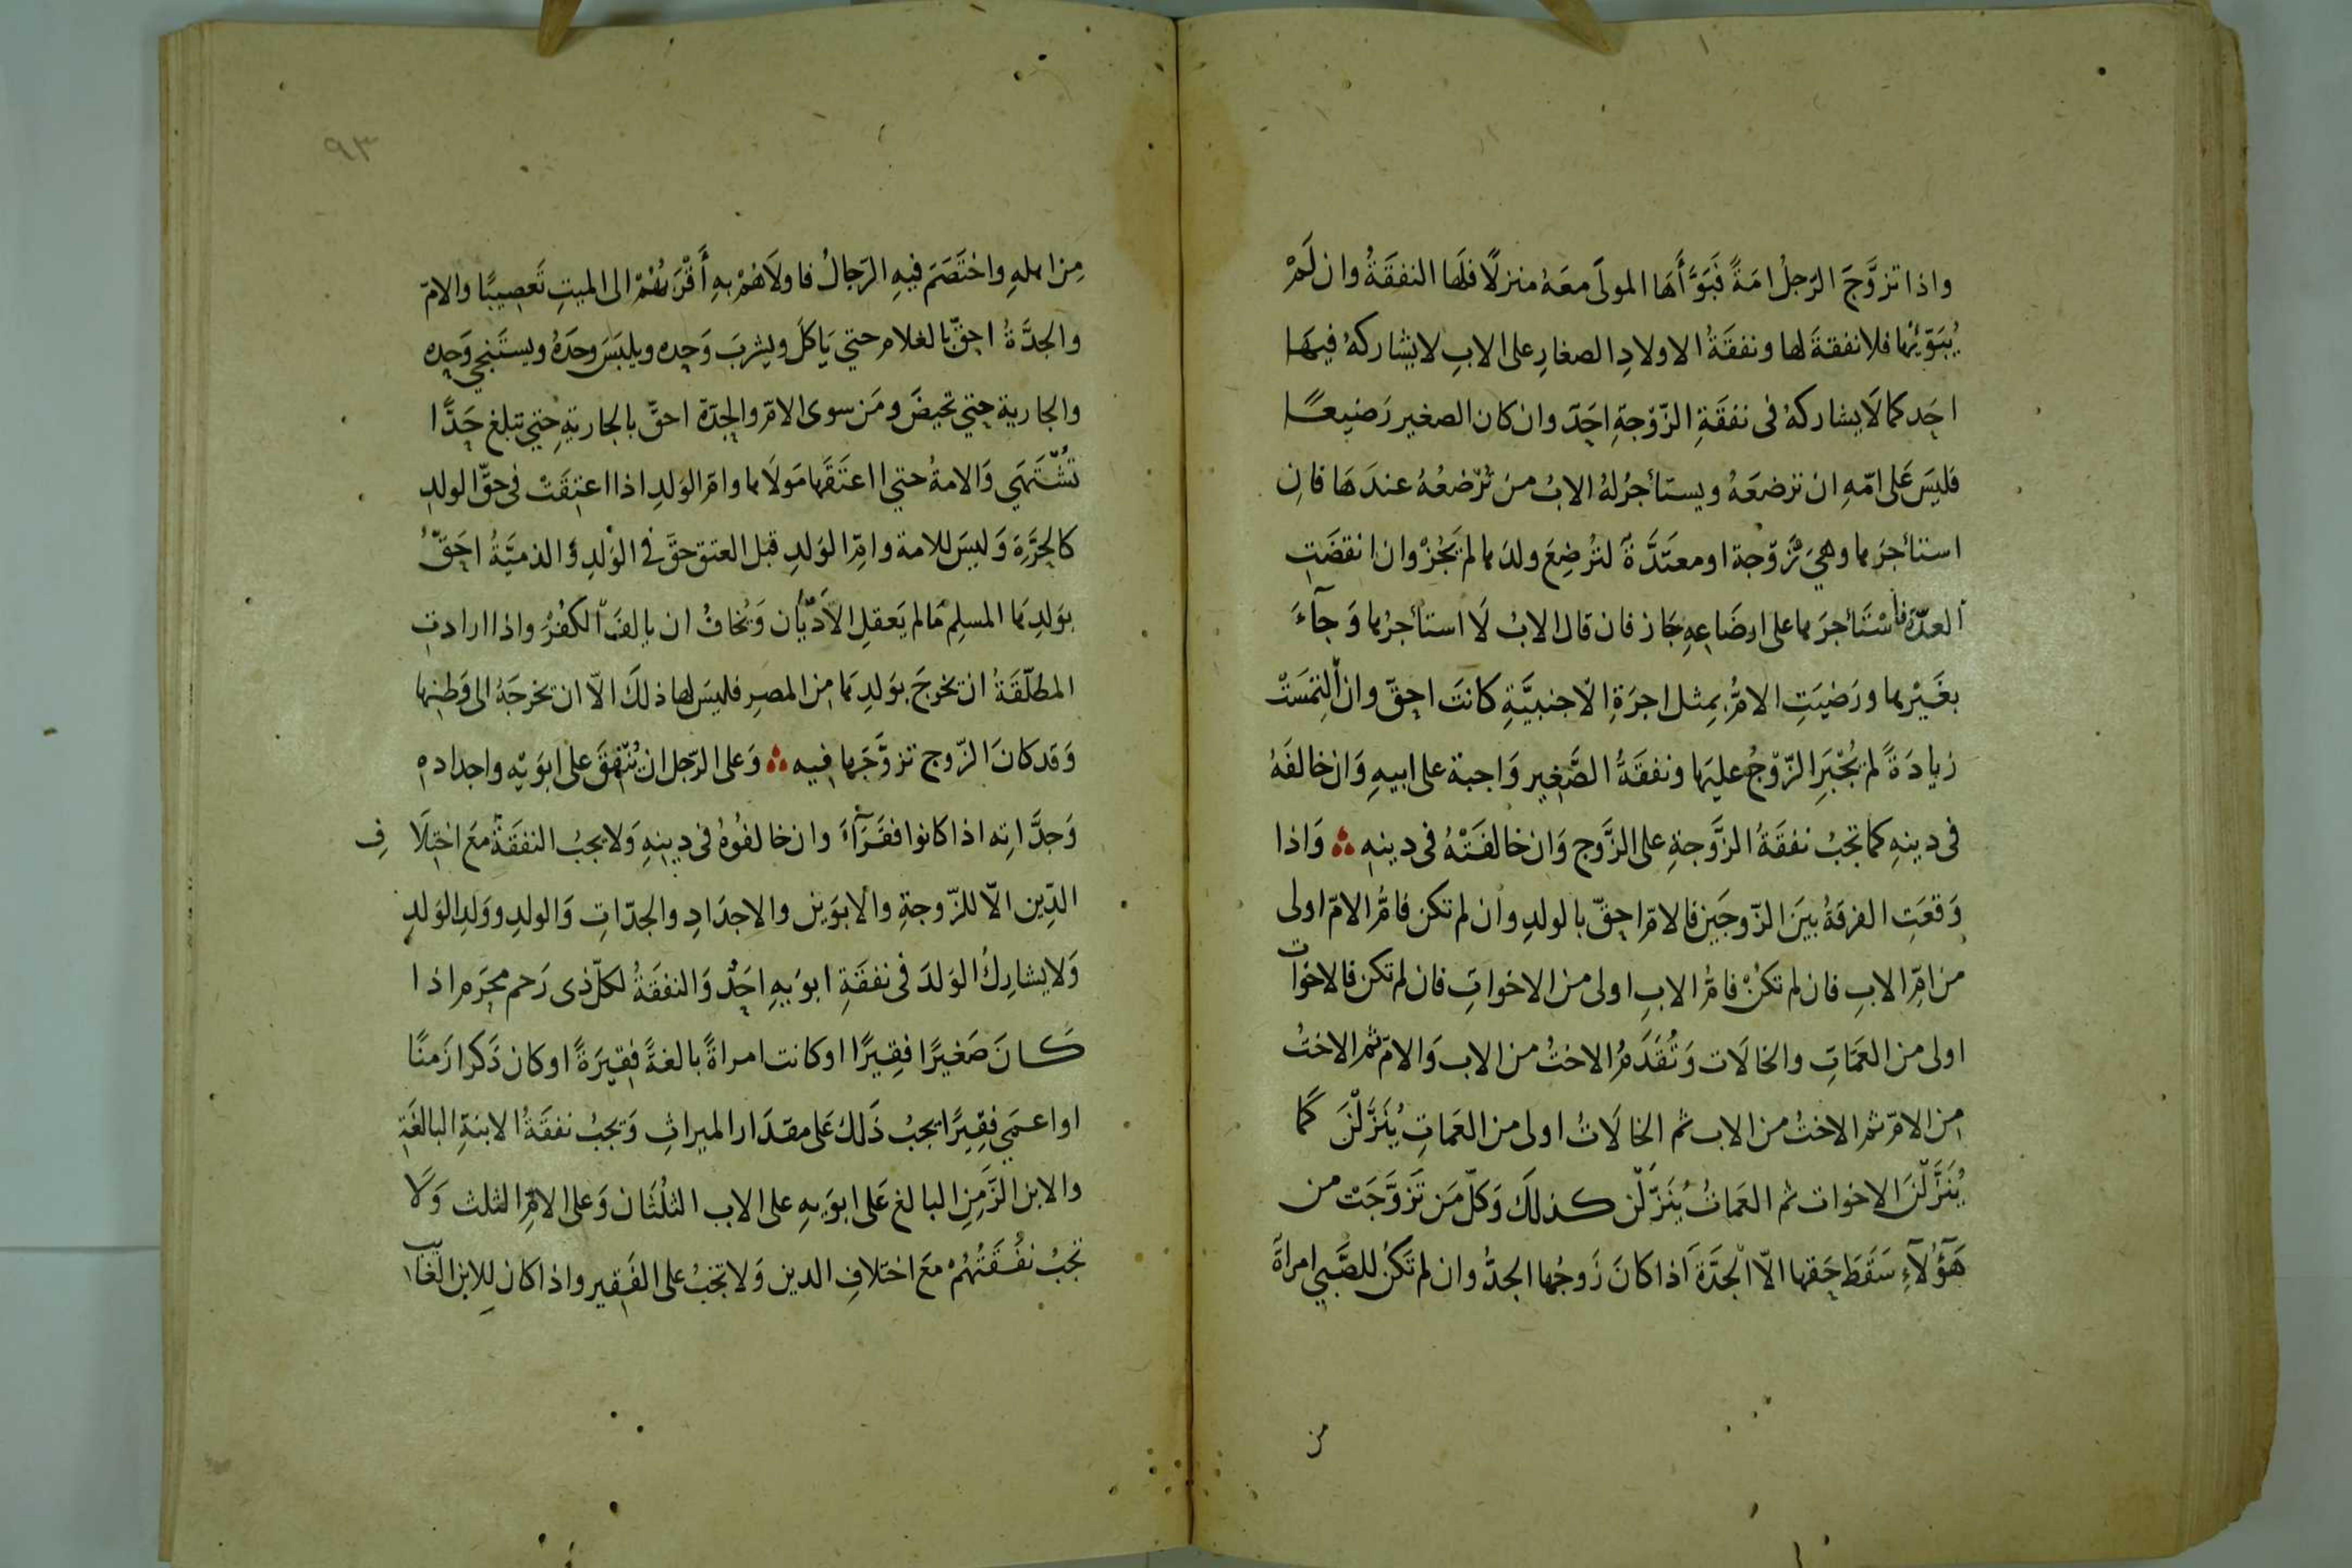 واذا تزوَّجَ الرّجلُ امَةً فَبَوَّأَهَا المولَى معَهُ منزلًا فلَها النفقَةُ وان لَمْ
يُبَوّئْها فلا نفقةَ لها ونفقَةُ الاولادِ الصغارِ على الابِ لا يشاركهُ فيهَا
احَد كما لَا يشاركهُ فى نفقَةِ الزّوْجَةِ احَدٌ وان كان الصغير رَضيعًا
فليسَ عَلى امّهِ ان ترضعَهُ ويستأجرُ لهُ الابُ منْ تُرْضعُهُ عندَهَا فانِ
استأجرَها وهىَ زَوْجة او معتَدَّةٌ لتُرْضِعَ ولدَها لم يَجُزْ وان انقضَتِ
العدّةُ فاسْتَأجرَها على ارضَاعِهِ جَاز فان قال الابُ لَا استأجرُها وَجآءَ
بغَيْرها ورَضيَتِ الامُّ بِمِثلِ اجرَةِ الاجنبيَّةِ كانَت احقّ وان الْتمَسَتْ
زيادَةً لم يُجْبَرِ الزّوْجُ عليَها ونفقَةُ الصَّغِير وَاجبة على ابيهِ وَان خالفَهُ
فى دينهِ كما تجبُ نفقَةُ الزَّوجةِ على الزَّوج وَان خالفَتْهُ فى دينهِ ؞ وَاذا
وَقعَتِ الفرقةُ بيَن الزّوجَيِن فالامّ احقّ بالولدِ وان لم تكن فامُّ الامّ اولى
من امّ الابِ فان لم تكنْ فامُّ الابِ اولى من الاخواتِ فان لم تكن فالاخوات
اولى من العَمّاتِ والخالَات وَتُقَدَّمُ الاختُ من الاب وَالامّ ثم الاختُ
من الامّ ثم الاختُ من الاب ثم الخالَاتُ اولى من العَماتِ يُنَزَّلْنَ كمَا
يُنَزَّلْنَ الاخوات ثم العَماتُ يُنَزّلْن كذلكَ وَكلّ مَن تَزَوَّجَتْ من
هَؤُلآءِ سَقَطَ حَقها الّا الجَدَّةَ اذا كانَ زَوجُها الجدُّ وان لم تَكنْ للصَّبي امراةٌ
من
٩٣
مِن اهلهِ واختَصَمَ فيهِ الرّجالُ فاولَاهُمْ بهِ أَقْرَبُهُمْ الى الميتِ تَعصيبًا والامّ
والجدَّةُ احقّ بالغلام حتي يَاكلَ ويشربَ وَحده ويلبَسَ وحدَهُ ويستَنجي وَحده
والجارية حتي تحيضَ ومَن سوى الامّ والجدّة احقّ بالجاريَةِ حتي تبلغ حَدًّا
تُشْتَهَي وَالامةُ حتي اذا اعتَقَها مَولَاها وامّ الوَلدِ اذا اعتِقَتْ فى حقّ الولدِ
كالحرَّةِ وَليسَ للامة وامّ الوَلدِ قبل العتق حقَّ فى الوَلدِ وَالذميَّةُ احَقُّ
بوَلدِهَا المسلِم مَا لم يَعقلِ الاَدْيَان وَيُخافُ ان يالفَ الكُفْرَ واذا ارادتِ
المطلّقَةُ ان تخرجَ بوَلدِهَا مِن المصرِ فليسَ لها ذلكَ الّا ان تخرجَهُ الى وَطنِها
وَقد كانَ الزّوج تزوَّجَها فيه ؞ وَعلى الرّجل ان يُنْفِقَ على ابوَيْه واجدادهِ
وَجدَّاتِه اذا كانوا فقَرَآءَ وان خالفُوهُ فى دينِهِ وَلا يجبُ النفقَةُ معَ اختِلَافِ
الدّين الّا للزّوجةِ والابوَين والاجدَادِ والجدّاتِ وَالولدِ ووَلدِ الوَلدِ
وَلا يشارِكُ الوَلدَ فى نفقَةِ ابوَيهِ احَدٌ وَالنفقَةُ لكلّ ذى رَحم محرَم اذا
كانَ صَغيرًا فقِيرًا او كانت امراةً بالغةً فقِيرَةً او كان ذَكرا زَمنًا
او اعمَي فقِيرًا يجبُ ذَلكَ عَلى مقدَار الميراثِ وَيجبُ نفقَةُ الابنَةِ البالغَةِ
والابن الزَّمِن البالغ عَلى ابوَيهِ على الاب الثلُثَان وَعلى الامِّ الثلث وَلا
تجبُ نفُقَتُهُمْ معَ اختلافِ الدين وَلا تجبُ على الفَقِير واذا كان لِلابن الغائب